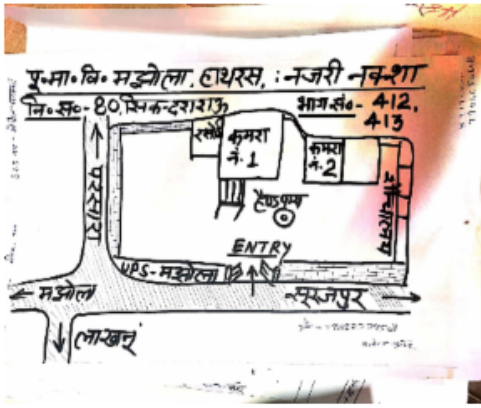 पू॰मा॰वि॰ मझोला, हाथरस, : नजरी नक्शा
वि॰ स॰- 80, सिकन्दराराऊ भाग सं॰- 412,
413
रसोई
कमरा
नं. 1
कमरा
नं. 2
शौचालय
हैण्डपम्प
परसारा
ENTRY
UPS - मझोला
मझोला
सूरजपुर
लाखनूं